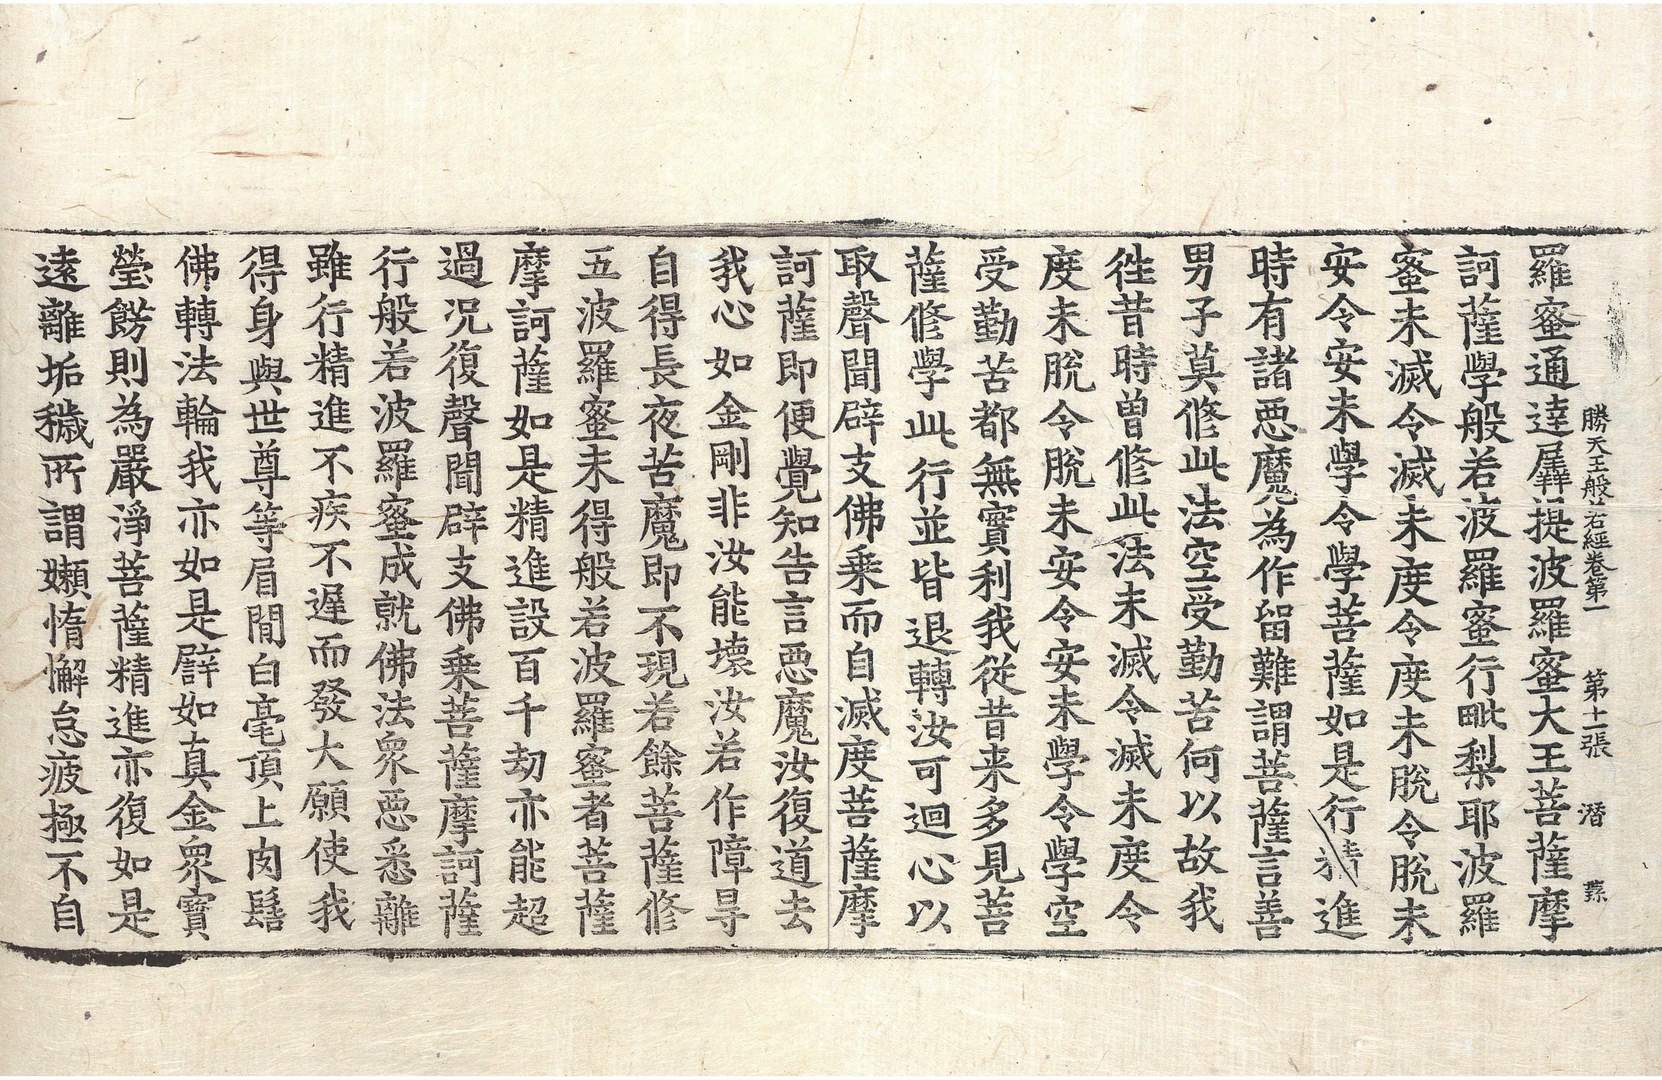 勝天王般若經卷第一 第十一張 潛
羅蜜通達羼提波羅蜜大王菩薩摩
訶薩學般若波羅蜜行毗梨耶波羅
蜜未滅令滅未度令度未脫令脫未
安令安未學令學菩薩如是行精進
時有諸惡魔為作留難謂菩薩言善
男子莫修此法空受勤苦何以故我
徃昔時曾修此法未滅令滅未度令
度未脫令脫未安令安未學令學空
受勤苦都無實利我從昔来多見菩
薩修學此行並皆退轉汝可迴心以
取聲聞辟支佛乗而自滅度菩薩摩
訶薩即便覺知告言惡魔汝復道去
我心如金剛非汝能壞汝若作障㝵
自得長夜苦魔即不現若餘菩薩修
五波羅蜜未得般若波羅蜜者菩薩
摩訶薩如是精進設百千劫亦能超
過况復聲聞辟支佛乗菩薩摩訶薩
行般若波羅蜜成就佛法衆惡悉離
雖行精進不疾不遲而發大願使我
得身與世尊等眉間白毫頂上肉髻
佛轉法輪我亦如是譬如真金衆寶
瑩餝則為嚴淨菩薩精進亦復如是
遠離垢穢所謂嬾惰懈怠疲極不自